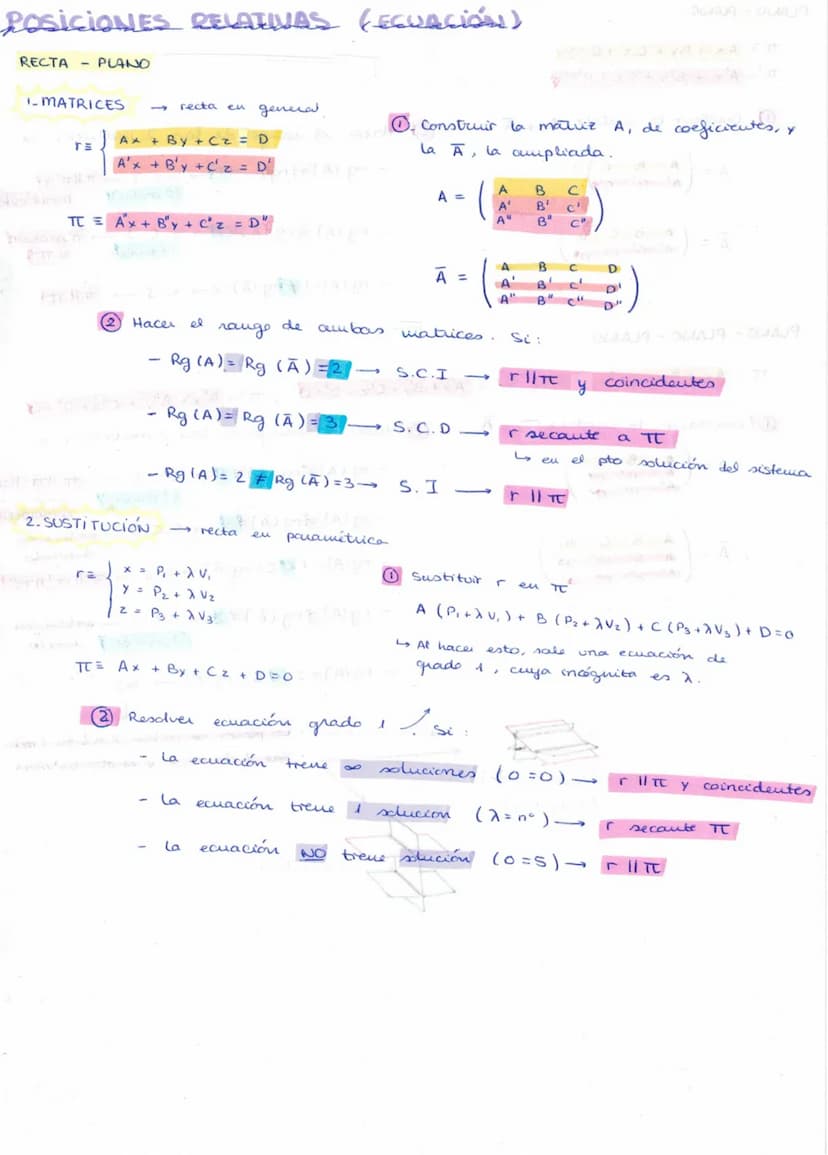 POSICIONES RELATIVAS (ECUACIÓN)
RECTA - PLANO
1-MATRICES → recta en general
r ≡ { Ax + By + Cz = D
A'x + B'y + C'z = D'
π ≡ A''x + B''y + C''z = D''
①. Construir la matriz A, de coeficientes, y
la Ā, la ampliada.
A = ( A B C
A' B' C'
A'' B'' C'' )
Ā = ( A B C D
A' B' C' D'
A'' B'' C'' D'' )
② Hacer el rango de ambas matrices. Si:
- Rg (A) = Rg (Ā) = 2 → S.C.I → r || π y coincidentes
- Rg (A) = Rg (Ā) = 3 → S.C.D → r secante a π
↳ en el pto solución del sistema
- Rg (A) = 2 ≠ Rg (Ā) = 3 → S.I → r || π
2. SUSTITUCIÓN → recta en paramétrica
r ≡ { x = P₁ + λV₁
y = P₂ + λV₂
z = P₃ + λV₃
π ≡ Ax + By + Cz + D = 0
① Sustituir r en π
A (P₁ + λV₁) + B (P₂ + λV₂) + C (P₃ + λV₃) + D = 0
↳ Al hacer esto, sale una ecuación de
grado 1, cuya incógnita es λ.
② Resolver ecuación grado 1. Si:
- La ecuación tiene ∞ soluciones (0 = 0) → r || π y coincidentes
- La ecuación tiene 1 solución (λ = nº) → r secante π
- La ecuación NO tiene solución (0 = 5) → r || π